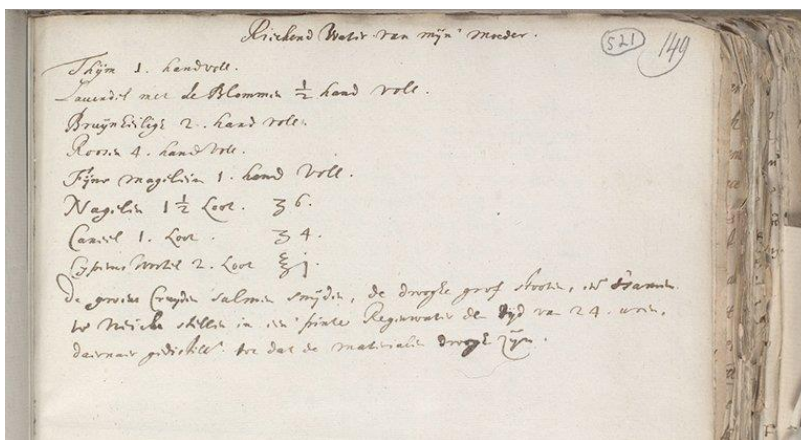 Riekend Water van mijn Moeder.
521
149
Thijm 1. handvoll.
Lavendel met de Blommen ½ hand voll.
Bruijn heilige 2. hand voll.
Roosen 4. handvoll.
Fijne magelein 1. hand voll.
Nagelen 1½ Loot. ʒ 6.
Caneel 1. Loot. ʒ 4.
Wortel 2. Loot ℥ j.
De groene Cruijden salmen snijden, de drooge grof stooten, en
te weicke stellen in een pinte Regenwater de tijd van 24. uren,
daernaer gedistill. tot dat de materialen droog zijn.